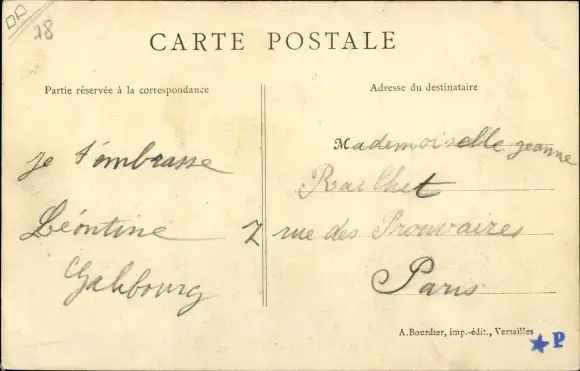 28
CARTE POSTALE
Partie réservée à la correspondance
Adresse du destinataire
je t'embrasse
Léontine
Galibourg
Mademoiselle jeanne
7 rue des Prouvaires
Paris
A. Bourdier, imp.-édit., Versailles
P